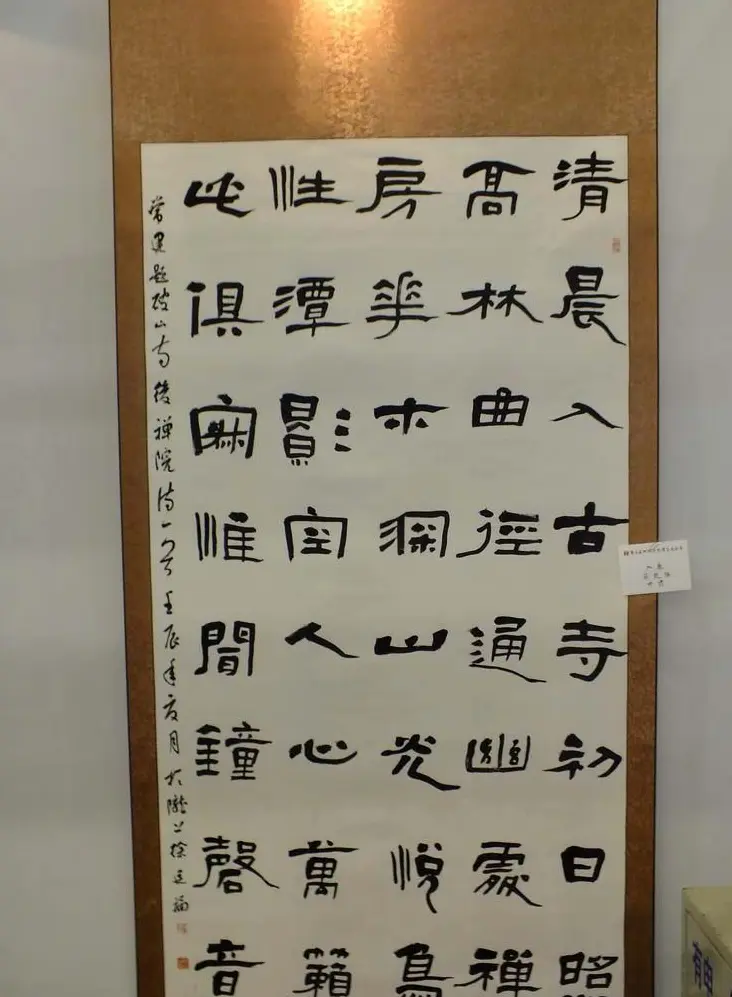 清晨入古寺初日照
髙林曲徑通幽處禪
房華木深山光悅鳥
性潭影空人心萬籟
此俱寂惟間鐘磬音
常建題破山寺後禪院詩一首 壬辰年夏月於隴上徐
有电